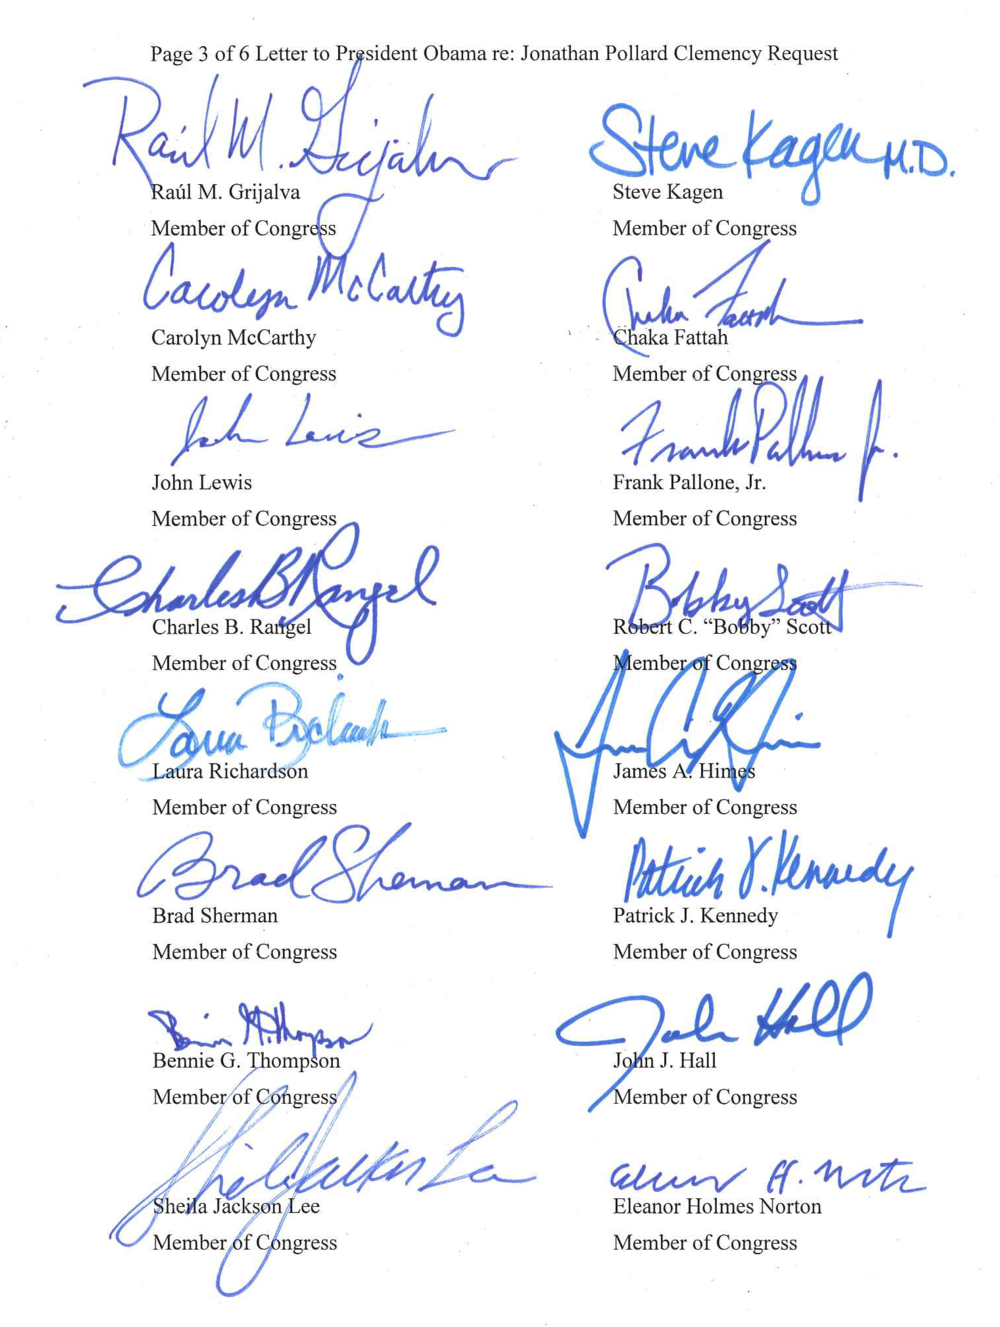 Page 3 of 6 Letter to President Obama re: Jonathan Pollard Clemency Request
Raúl M. Grijalva
Steve Kagen M.D.
Raúl M. Grijalva
Steve Kagen
Member of Congress
Member of Congress
Carolyn McCarthy
Chaka Fattah
Carolyn McCarthy
Chaka Fattah
Member of Congress
Member of Congress
John Lewis
Frank Pallone Jr.
John Lewis
Frank Pallone, Jr.
Member of Congress
Member of Congress
Charles B Rangel
Bobby Scott
Charles B. Rangel
Robert C. “Bobby” Scott
Member of Congress
Member of Congress
Laura Richardson
Laura Richardson
James A. Himes
Member of Congress
Member of Congress
Brad Sherman
Patrick J. Kennedy
Brad Sherman
Patrick J. Kennedy
Member of Congress
Member of Congress
John Hall
Bennie G. Thompson
John J. Hall
Member of Congress
Member of Congress
Sheila Jackson Lee
Sheila Jackson Lee
Eleanor Holmes Norton
Member of Congress
Member of Congress